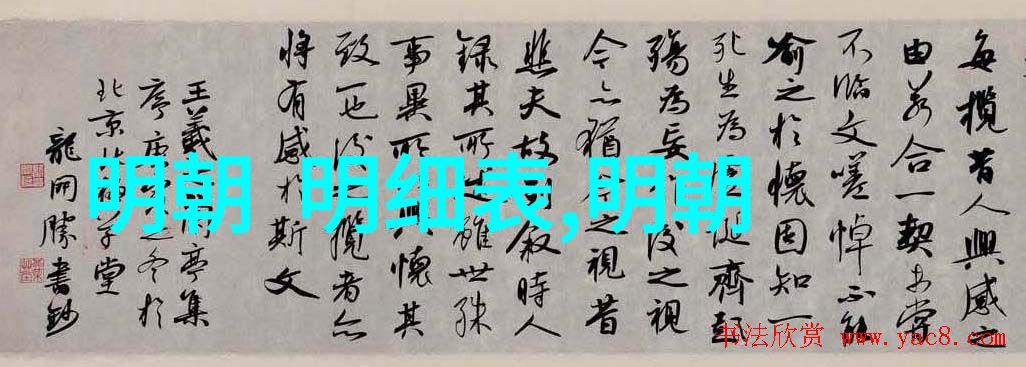 每攬昔人興感之
由若合一契未嘗
不臨文嗟悼不能
喻之於懷固知一
死生為誕齊彭
殤為妄後之視
今亦猶之視昔
悲夫故敘時人
錄其所雖世殊
事異所興懷其
致一也攬者亦
將有感於斯文
王羲亭集
序庚之冬於
北京堂
龍開勝書鈔
明朝 明细表,明朝
书法欣赏 www.yac8.com